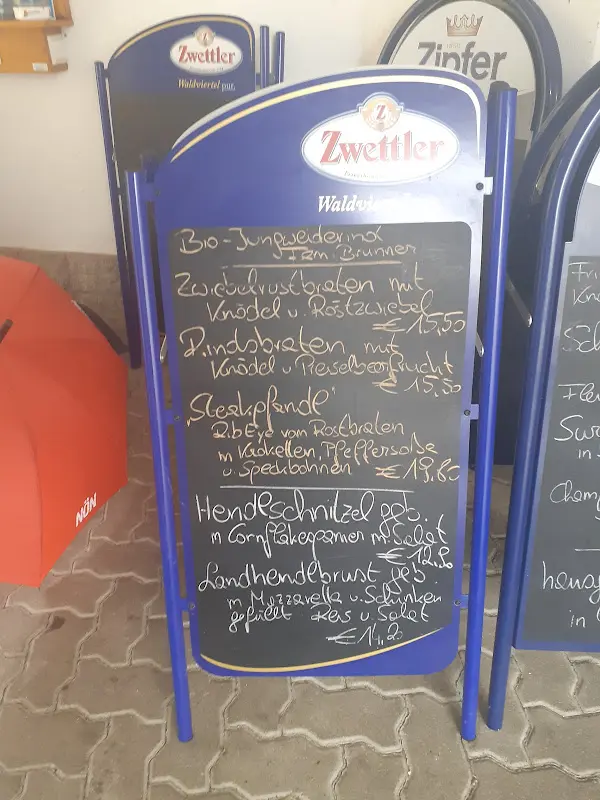 Zwettler
Waldviertel pur.
Zipfer
Zwettler
Bio-Jungweiderind
Fam. Brunner
Zwiebelrostbraten mit
Knödel u. Röstzwiebel
€ 15,50
Rindsbraten mit
Knödel u. Preiselbeerfrucht
€ 15,50
"Steakpfandl"
Rib Eye vom Rostbraten
m Kroketten, Pfeffersoße
u. Speckbohnen € 19,80
Hendlschnitzel geb.
m Cornflakespanier m Salat
€ 12,90
Landhendlbrust geb.
m Mozzarella u. Schinken
gefüllt Reis u. Salat
€ 14,20
NÖN